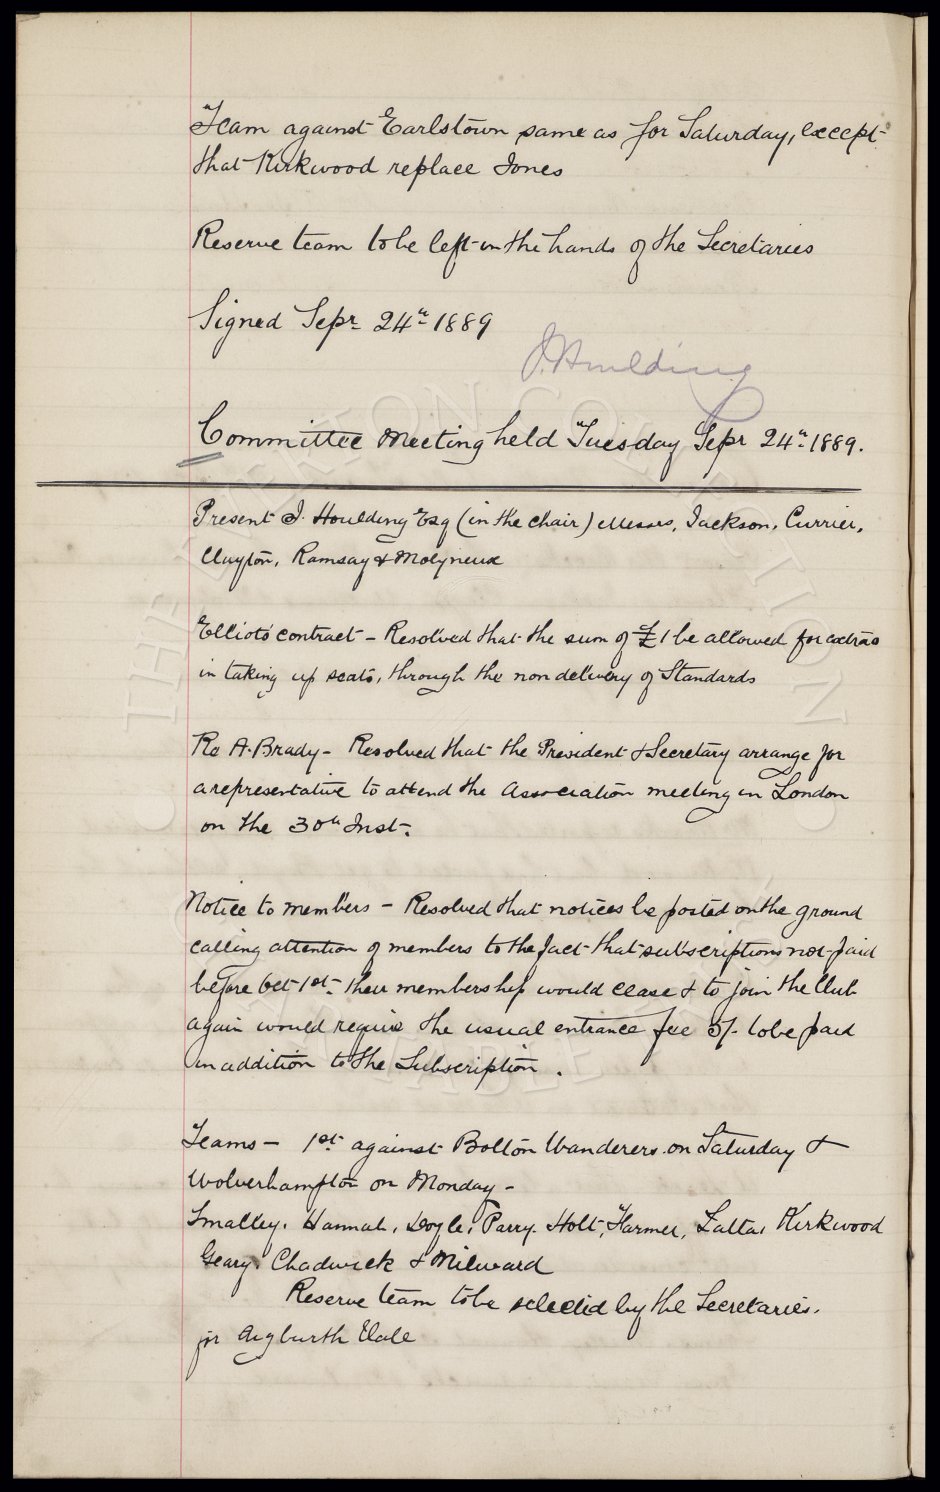 Team against Earlstown same as for Saturday, except
that Kirkwood replace Jones
Reserve team to be left in the hands of the Secretaries
Signed Sepr 24th 1889
J. Houlding
Committee Meeting held Tuesday Sepr 24th 1889.
Present J. Houlding Esq (in the chair) Messrs, Jackson, Currier,
Clayton, Ramsay & Molyneux
Elliots' contract - Resolved that the sum of £1 be allowed for extras
in taking up seats, through the non delivery of Standards
Re A. Brady - Resolved that the President & Secretary arrange for
a representative to attend the Association meeting in London
on the 30th Inst.
Notice to members - Resolved that notices be posted on the ground
calling attention of members to the fact that subscriptions not paid
before Oct 1st. their membership would cease & to join the Club
again would require the usual entrance fee 5/- to be paid
in addition to the Subscription.
Teams - 1st. against Bolton Wanderers on Saturday &
Wolverhampton on Monday -
Smalley. Hannah, Doyle, Parry. Holt, Farmer, Latta, Kirkwood
Geary. Chadwick & Milward
Reserve team to be selected by the Secretaries.
for Aigburth Vale